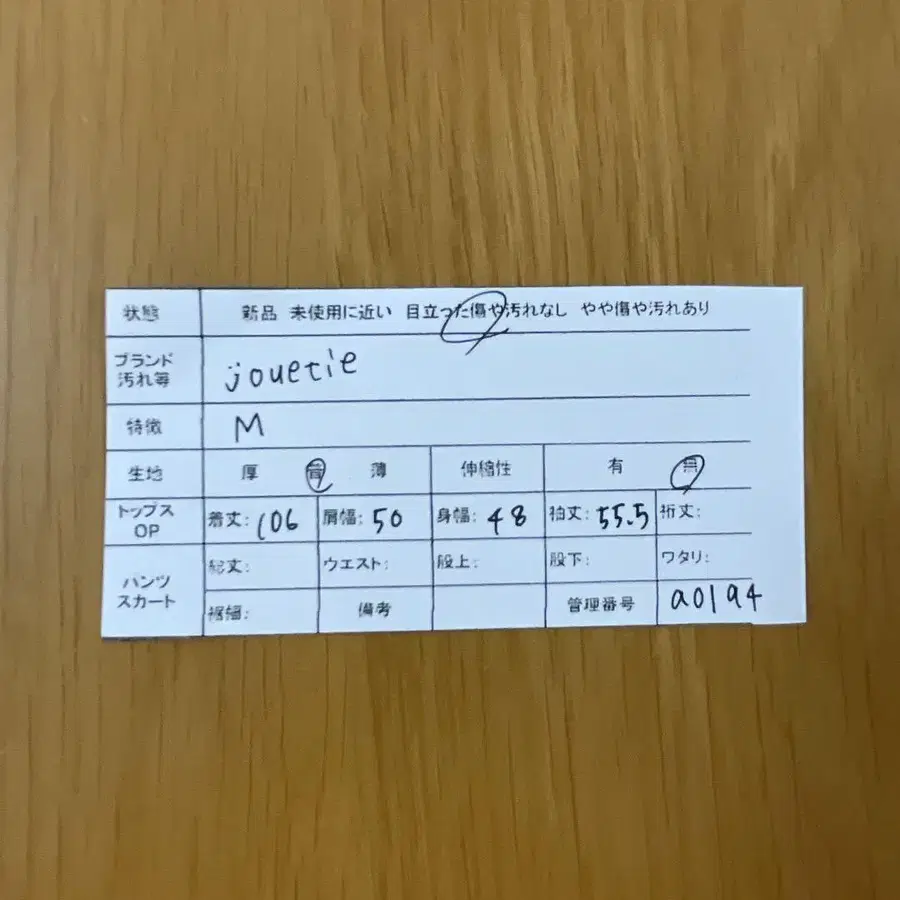 状態 新品 未使用に近い 目立った傷や汚れなし やや傷や汚れあり
ブランド 汚れ等 jouetie
特徴 M
生地 厚 普 薄 伸縮性 有 無
トップス OP 着丈: 106 肩幅: 50 身幅: 48 袖丈: 55.5 裄丈:
パンツ スカート 総丈: ウエスト: 股上: 股下: ワタリ:
裾幅: 備考 管理番号 a0194